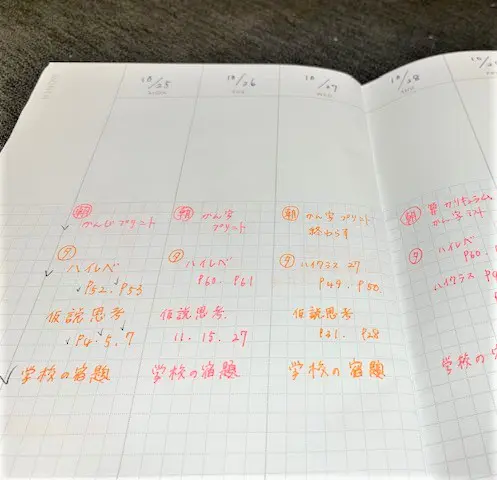 10/25
10/26
10/27
10/28
朝
かんじプリント
夕
ハイレベ
P52. P53
仮説思考
P4. 5. 7
学校の宿題
朝
かん字
プリント
夕
ハイレベ
P60. P61
仮説思考.
11. 15. 27
学校の宿題
朝
かん字プリント
終わらす
夕
ハイクラス 27
P49. P50
仮説思考
P21. P28
学校の宿題
朝
かん字テスト
夕
ハイレベ
P60.
ハイクラス P4
学校の宿